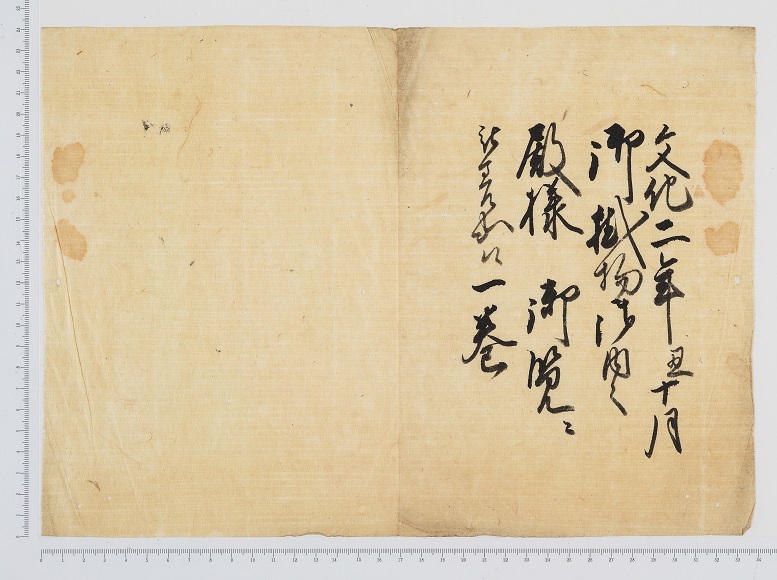 文化二年丑十月
御掛物御内々
殿様 御覧ニ
一巻